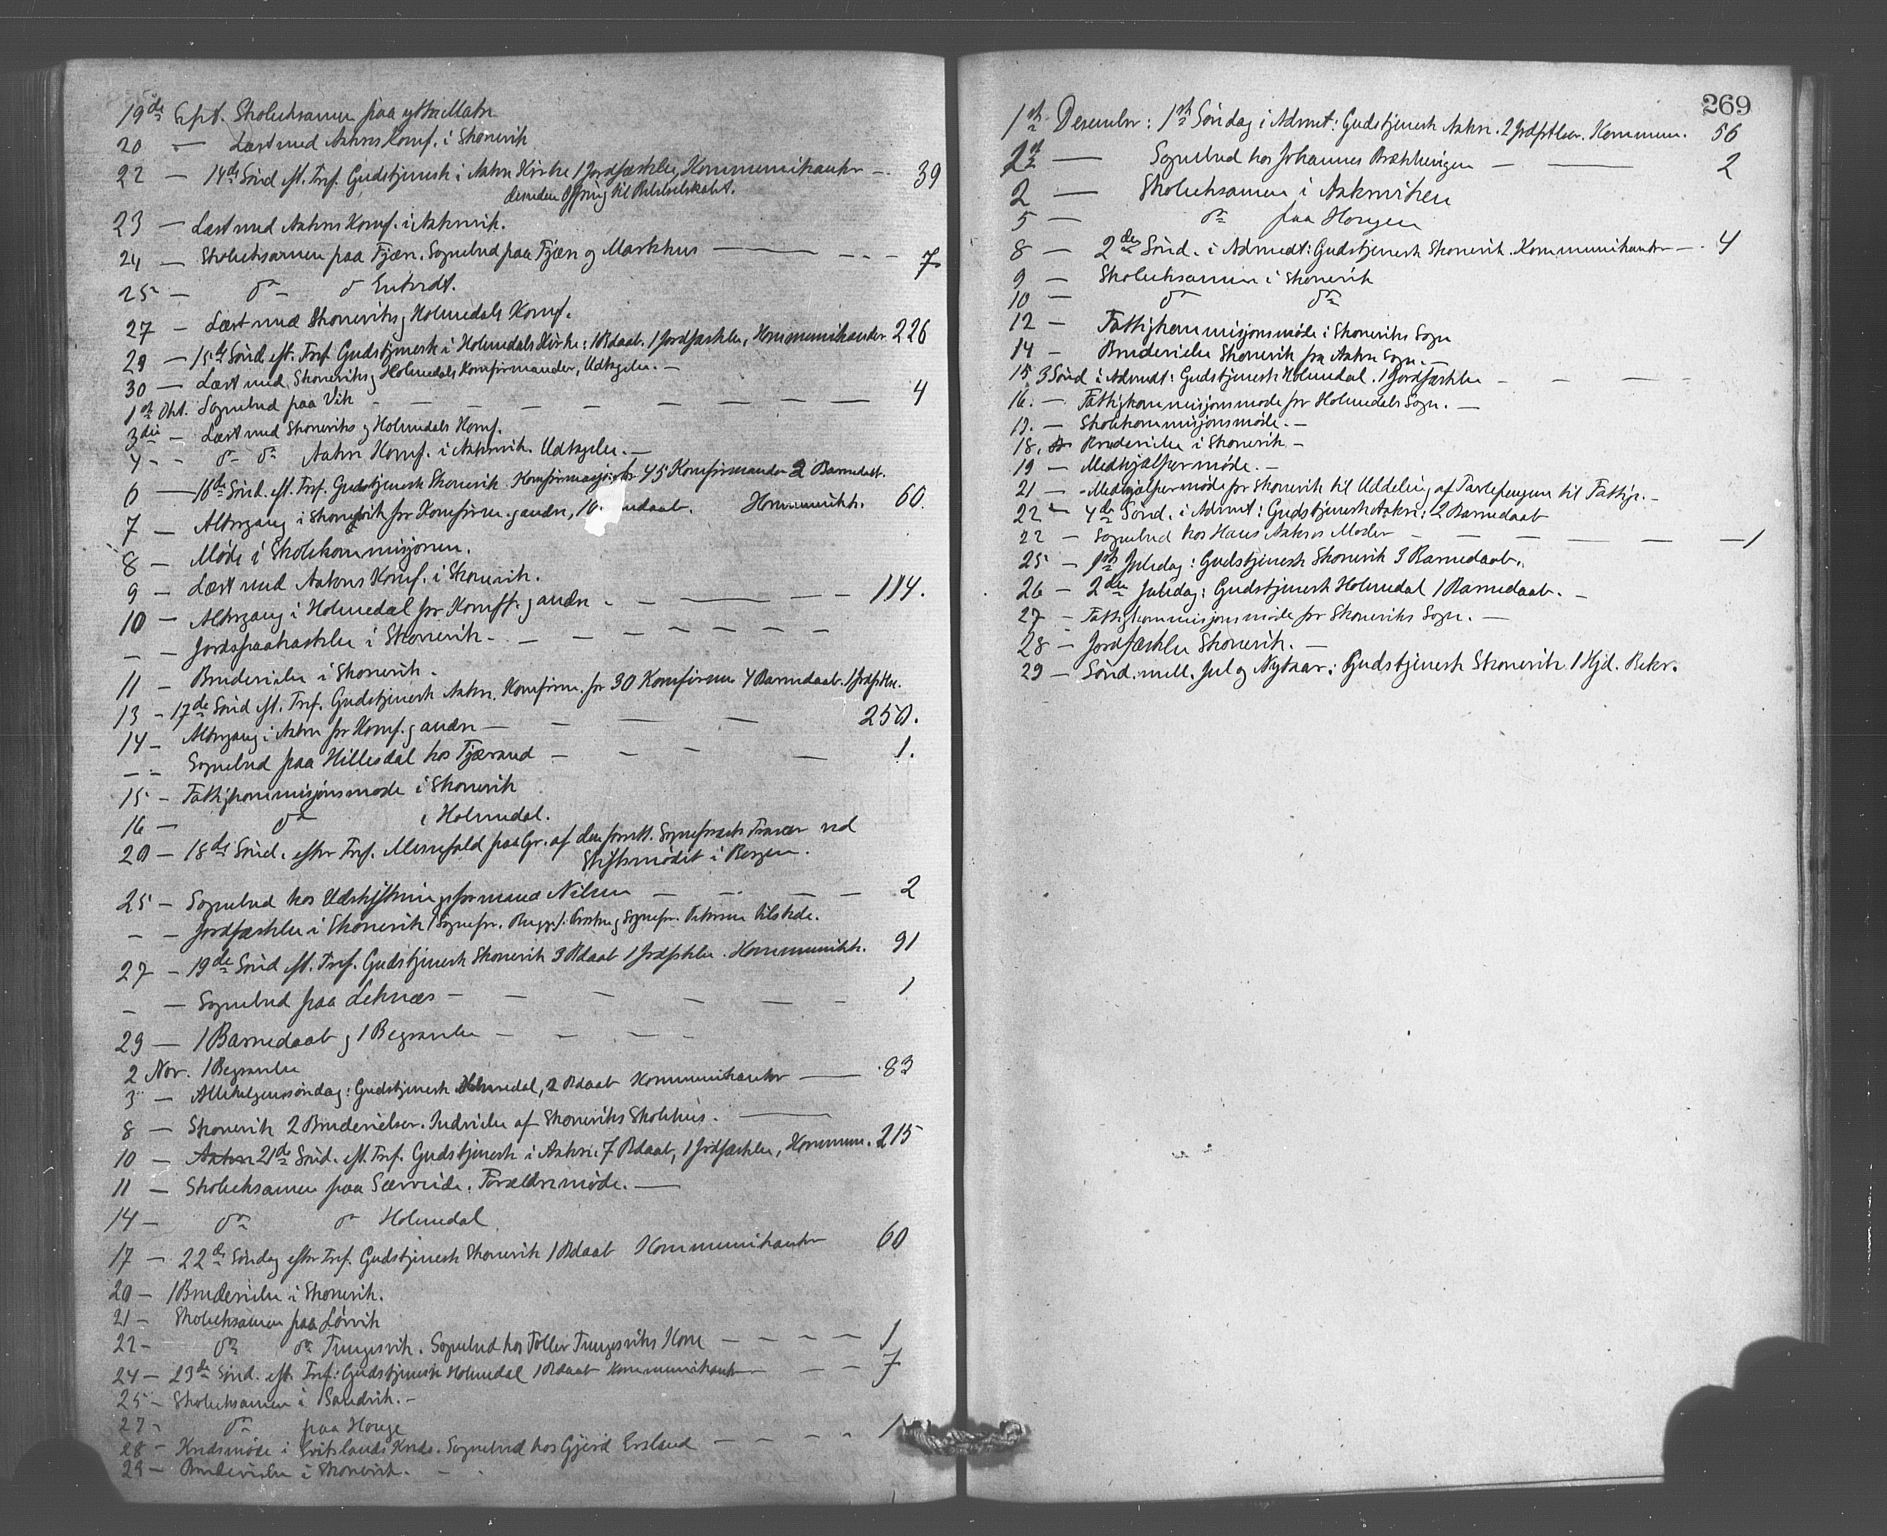 19de Sept. Skoleeksamen paa ytre Matre
20 — Læst med Aakres Konf. i Skonevik
22 — 14de Sønd. eft. Tref. Gudstjeneste i Aakre Kirke 1 Jordfæstelse, Kommunikanter — 39
desuden Offring til Bibelselskabet.
23 — Læst med Aakres Konf. i Aakrevik.
24 — Skoleeksamen paa Fjæra. Sognebud paa Fjæra og Markhus — 7
25 — do do
27 — Læst med Skoneviks og Holmedals Konf.
29 — 15de Sønd. eft. Tref. Gudstjeneste i Holmedals Kirke: 1 Bdaab. 1 Jordfæstelse, Kommunikanter 226
30 — Læst med Skoneviks og Holmedals Konfirmander, Udtagelse. —
1ste Okt. Sognebud paa Vik — 4
3die — Læst med Skoneviks og Holmedals Konf.
4 — do do Aakre Konf. i Aakrevik. Udtagelse. —
6 — 16de Sønd. eft. Tref. Gudstjeneste Skonevik. Konfirmasjon for 45 Konfirmander 2 Barnedaab.
7 — Altergang i Skonevik for Konfirm. og andre, Kommunik. 60.
8 — Møde i Skolekommisjonen.
9 — Læst med Aakres Konf. i Skonevik.
10 — Altergang i Holmedal for Konff. og andre — 114.
— — Jordspaakastelse i Skonevik —
11 — Brudevielse i Skonevik.
13 — 17de Sønd. eft. Tref. Gudstjeneste Aakre. Konfirm. for 30 Konfirm. 4 Barnedaab. 1 Jordfstlse.
14 — Altergang i Aakre for Konf. og andre — 250.
— — Sognebud paa Hillesdal hos Fjærand — 1.
15 — Fattigkommisjonsmøde i Skonevik
16 — do i Holmedal.
20 — 18de Sønd. efter Tref. Messefald paa Gr. af den forrett. Sogneprests Fravær ved
Stiftsmødet i Bergen.
25 — Sognebud hos Udskiftningsformand Nilsen — 2
— — Jordfæstelse i Skonevik (Sognepr. Bugge). Prost og Sognepr. tilstede.
27 — 19de Sønd. eft. Tref. Gudstjeneste Skonevik 3 Bdaab 1 Jrdfstelse. Kommunikk. 91
— — Sognebud paa Leknæs — 1
29 — 1 Barnedaab og 1 Begravelse —
2 Nov. 1 Begravelse
3 — Allehelgenssøndag: Gudstjeneste Holmedal, 2 Bdaab Kommunikanter — 83
8 — Skonevik 2 Brudevielser. Indvielse af Skoneviks Skolehus. —
10 — Aakre 21de Sønd. eft. Tref. Gudstjeneste i Aakre. 7 Bdaab, 1 Jordfæstelse, Kommun. 215
11 — Skoleeksamen paa Særvude. Forældremøde. —
14 — do do Holmedal
17 — 22de Søndag efter Tref. Gudstjeneste Skonevik 1 Bdaab Kommunikanter 60
20 — 1 Brudevielse i Skonevik.
21 — Skoleeksamen paa Lørvik
22 — do do Tungesvik. Sognebud hos Toller Tungesviks Kone — 1
24 — 23de Sønd. eft. Tref: Gudstjeneste Holmedal 1 Bdaab Kommunikanter — 7
25 — Skoleeksamen i Sandvik. —
27 — do paa Houge
28 — Kredsmøde i Kreds. Sognebud hos Gjerd Ersland — 1
29 — Brudevielse i Skonevik. —
269
1ste Desember: 1ste Søndag i Advent: Gudstjeneste Aakre. 2 Jrdfstlser. Kommun. 56
2den — Sognebud hos Johannes — 2
2 — Skoleeksamen i Aakreviken
5 — do paa Hougen
8 — 2den Sønd. i Advent: Gudstjeneste Skonevik. Kommunikanter — 4
9 — Skoleeksamen i Skonevik
10 — do do
12 — Fattigkommisjonsmøde i Skoneviks Sogn
14 — Brudevielse Skonevik fra Aakre Sogn. —
15. 3 Sønd i Advent: Gudstjeneste Holmedal. 1 Jordfæstelse —
16. — Fattigkommisjonsmøde for Holmedals Sogn. —
17. — Skolekommisjonsmøde. —
18. Brudevielse i Skonevik —
19 — Medhjælpermøde. —
21 — Medhjælpermøde for Skonevik til Uddeling af til Fattige. —
22 — 4de Sønd. i Advent: Gudstjeneste Aakre: 2 Barnedaab
22 — Sognebud hos Hans Aakres Moder — 1
25 — 1ste Juledag: Gudstjeneste Skonevik 3 Barnedaab.
26 — 2den Juledag: Gudstjeneste Holmedal 1 Barnedaab. —
27 — Fattigkommisjonsmøde for Skoneviks Sogn. —
28 — Jordfæstelse Skonevik. —
29 — Sønd. mell. Jul og Nytaar: Gudstjeneste Skonevik 1 Hjd. Bekr.